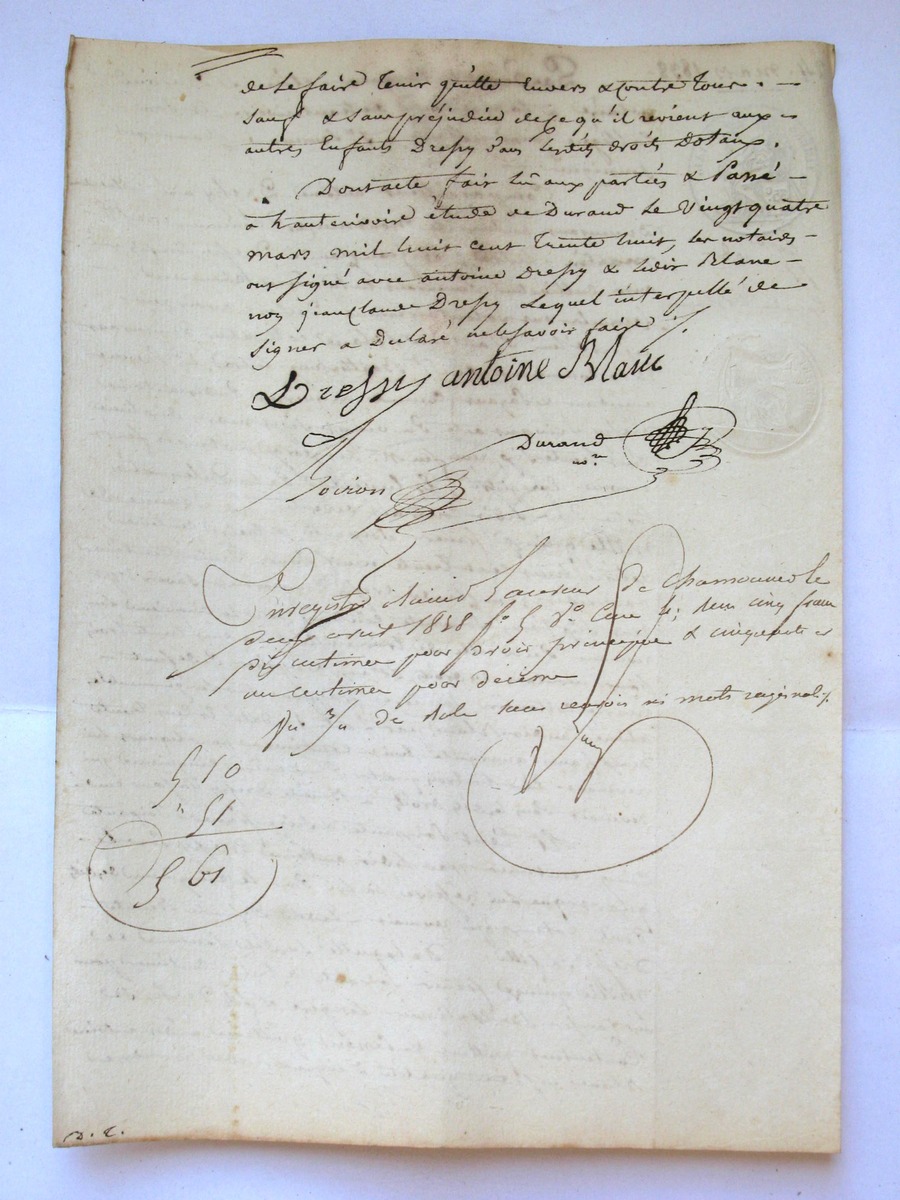 de le faire tenir quitte envers & contre tous. —
sauf & sans préjudice de ce qu'il revient aux =
autres Enfants Drespy dans lesdits droits Dotaux.
Dont acte fait lû aux parties & Passé —
à hauterivoire étude de Durand le Vingt quatre
mars mil huit cent trente huit, les notaires —
ont signé avec antoine Drespy & ledit Blanc —
non jean Claude Drespy lequel interpellé de
signer a Déclaré ne le savoir faire ./.
Drespy antoine Blanc
Durand
nore
Coiron
Enregistré à Laurent de Chamousset le
deux avril 1838 fo 5 Vo Case 4; Reçu cinq francs
dix centimes pour droit principal & cinquante =
un centimes pour décime
de rôle sans renvois ni mots rayés nuls ./.
5 10
" 51
5 61
D. C.